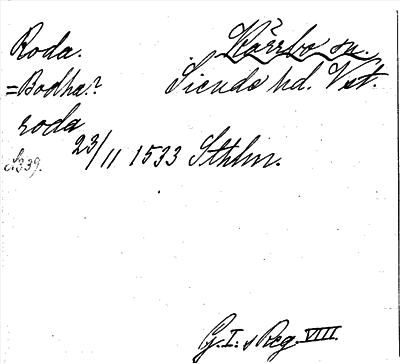 Roda. Kärrbo sn.
=Bodha? Siende hd. Vst.
roda
23/11 1533 Sthlm.
S. 339.
G. I. s Reg. VIII.